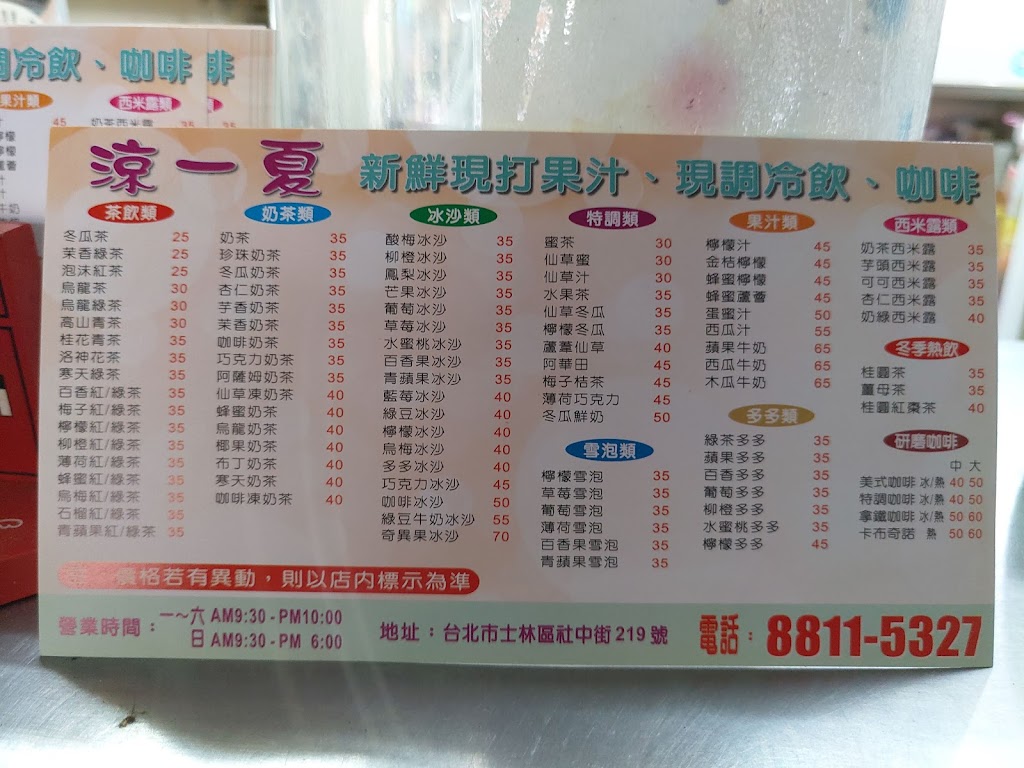 調冷飲、咖啡
啡
果汁類
西米露類
45
奶茶西米露 35
35
涼一夏 新鮮現打果汁、現調冷飲、咖啡
茶飲類
冬瓜茶 25
茉香綠茶 25
泡沫紅茶 25
烏龍茶 30
烏龍綠茶 30
高山青茶 30
桂花青茶 35
洛神花茶 35
寒天綠茶 35
百香紅/綠茶 35
梅子紅/綠茶 35
檸檬紅/綠茶 35
柳橙紅/綠茶 35
薄荷紅/綠茶 35
蜂蜜紅/綠茶 35
烏梅紅/綠茶 35
石榴紅/綠茶 35
青蘋果紅/綠茶 35
奶茶類
奶茶 35
珍珠奶茶 35
冬瓜奶茶 35
杏仁奶茶 35
芋香奶茶 35
茉香奶茶 35
咖啡奶茶 35
巧克力奶茶 35
阿薩姆奶茶 35
仙草凍奶茶 40
蜂蜜奶茶 40
烏龍奶茶 40
椰果奶茶 40
布丁奶茶 40
寒天奶茶 40
咖啡凍奶茶 40
冰沙類
酸梅冰沙 35
柳橙冰沙 35
鳳梨冰沙 35
芒果冰沙 35
葡萄冰沙 35
草莓冰沙 35
水蜜桃冰沙 35
百香果冰沙 35
青蘋果冰沙 35
藍莓冰沙 40
綠豆冰沙 40
檸檬冰沙 40
烏梅冰沙 40
多多冰沙 40
巧克力冰沙 45
咖啡冰沙 50
綠豆牛奶冰沙 55
奇異果冰沙 70
特調類
蜜茶 30
仙草蜜 30
仙草汁 30
水果茶 35
仙草冬瓜 35
檸檬冬瓜 35
蘆薈仙草 40
阿華田 45
梅子桔茶 45
薄荷巧克力 45
冬瓜鮮奶 50
雪泡類
檸檬雪泡 35
草莓雪泡 35
葡萄雪泡 35
薄荷雪泡 35
百香果雪泡 35
青蘋果雪泡 35
果汁類
檸檬汁 45
金桔檸檬 45
蜂蜜檸檬 45
蜂蜜蘆薈 45
蛋蜜汁 50
西瓜汁 55
蘋果牛奶 65
西瓜牛奶 65
木瓜牛奶 65
多多類
綠茶多多 35
蘋果多多 35
百香多多 35
葡萄多多 35
柳橙多多 35
水蜜桃多多 35
檸檬多多 45
西米露類
奶茶西米露 35
芋頭西米露 35
可可西米露 35
杏仁西米露 35
奶綠西米露 40
冬季熱飲
桂圓茶 35
薑母茶 35
桂圓紅棗茶 40
研磨咖啡
中 大
美式咖啡 冰/熱 40 50
特調咖啡 冰/熱 40 50
拿鐵咖啡 冰/熱 50 60
卡布奇諾 熱 50 60
價格若有異動，則以店內標示為準
營業時間：一～六 AM9:30 - PM10:00
日 AM9:30 - PM 6:00
地址：台北市士林區社中街219號
電話：8811-5327